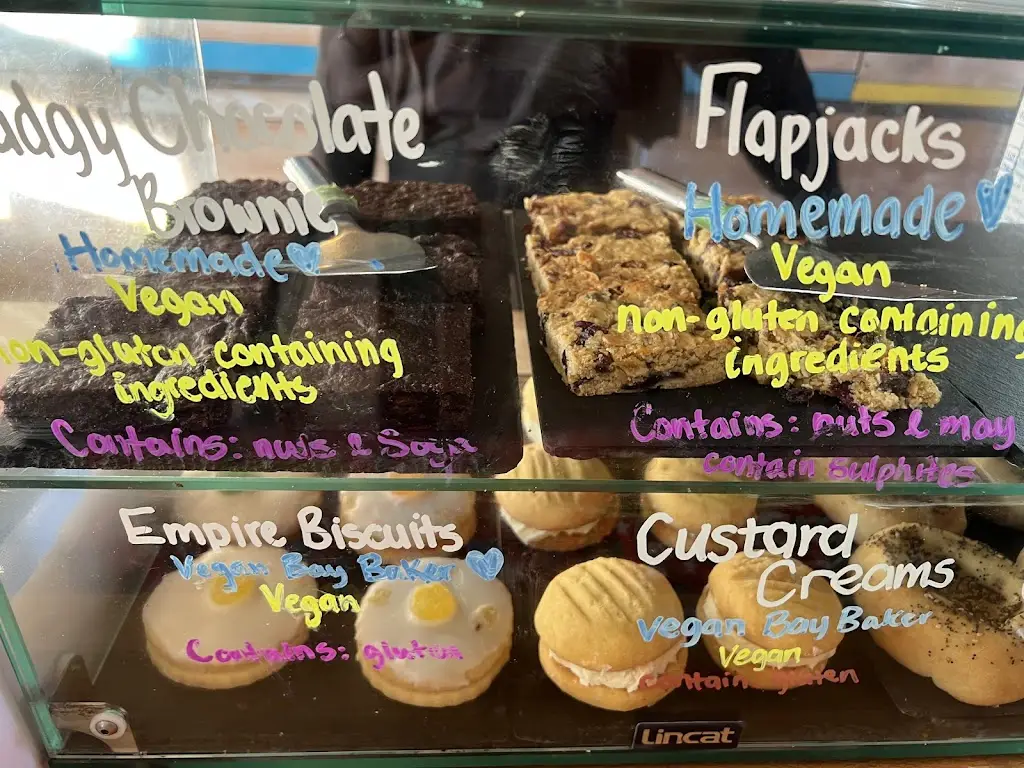 udgy Chocolate
Brownie
Homemade
Vegan
non-gluten containing
ingredients
Contains: nuts & Soya
Flapjacks
Homemade
Vegan
non-gluten containing
ingredients
Contains: nuts & may
contain sulphites
Empire Biscuits
Vegan Bay Baker
Vegan
Contains: gluten
Custard
Creams
Vegan Bay Baker
Vegan
Contain gluten
Lincat